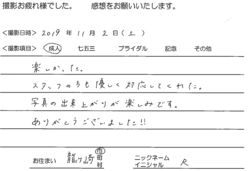 撮影お疲れ様でした。 感想をお願いいたします。
<撮影日時> 2019 年 11 月 2 日 (土)
<撮影項目> 成人 七五三 ブライダル 記念 その他
楽しかった。
スタッフの方も優しく対応してくれた。
写真の出来上がりが楽しみです。
ありがとうございました!!
お住まい 市 町 村 ニックネーム イニシャル R